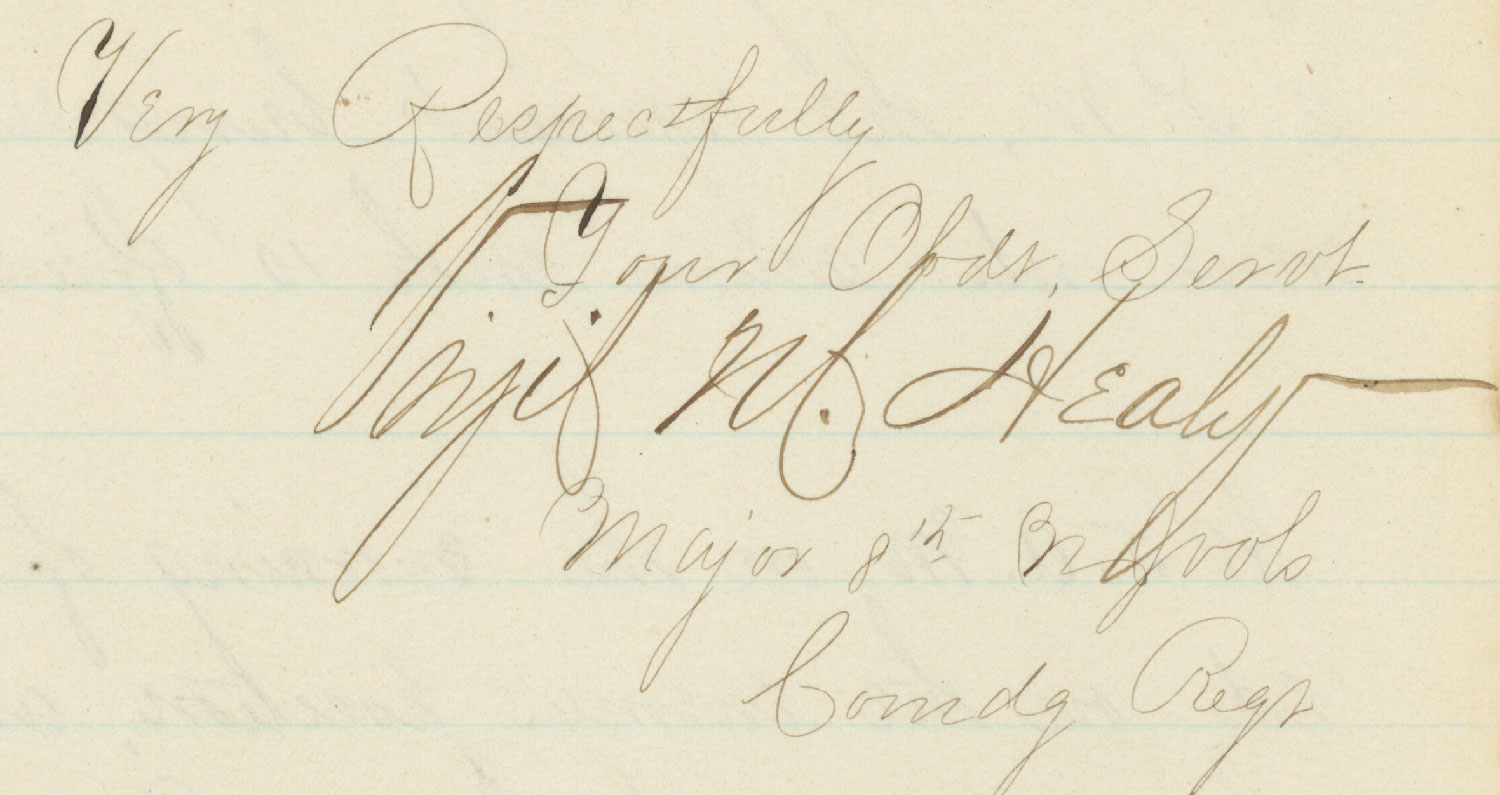 Very Respectfully
Your Obdt, Servt.
Virgil M. Healy
Major 8th N J Vols
Comdg Regt